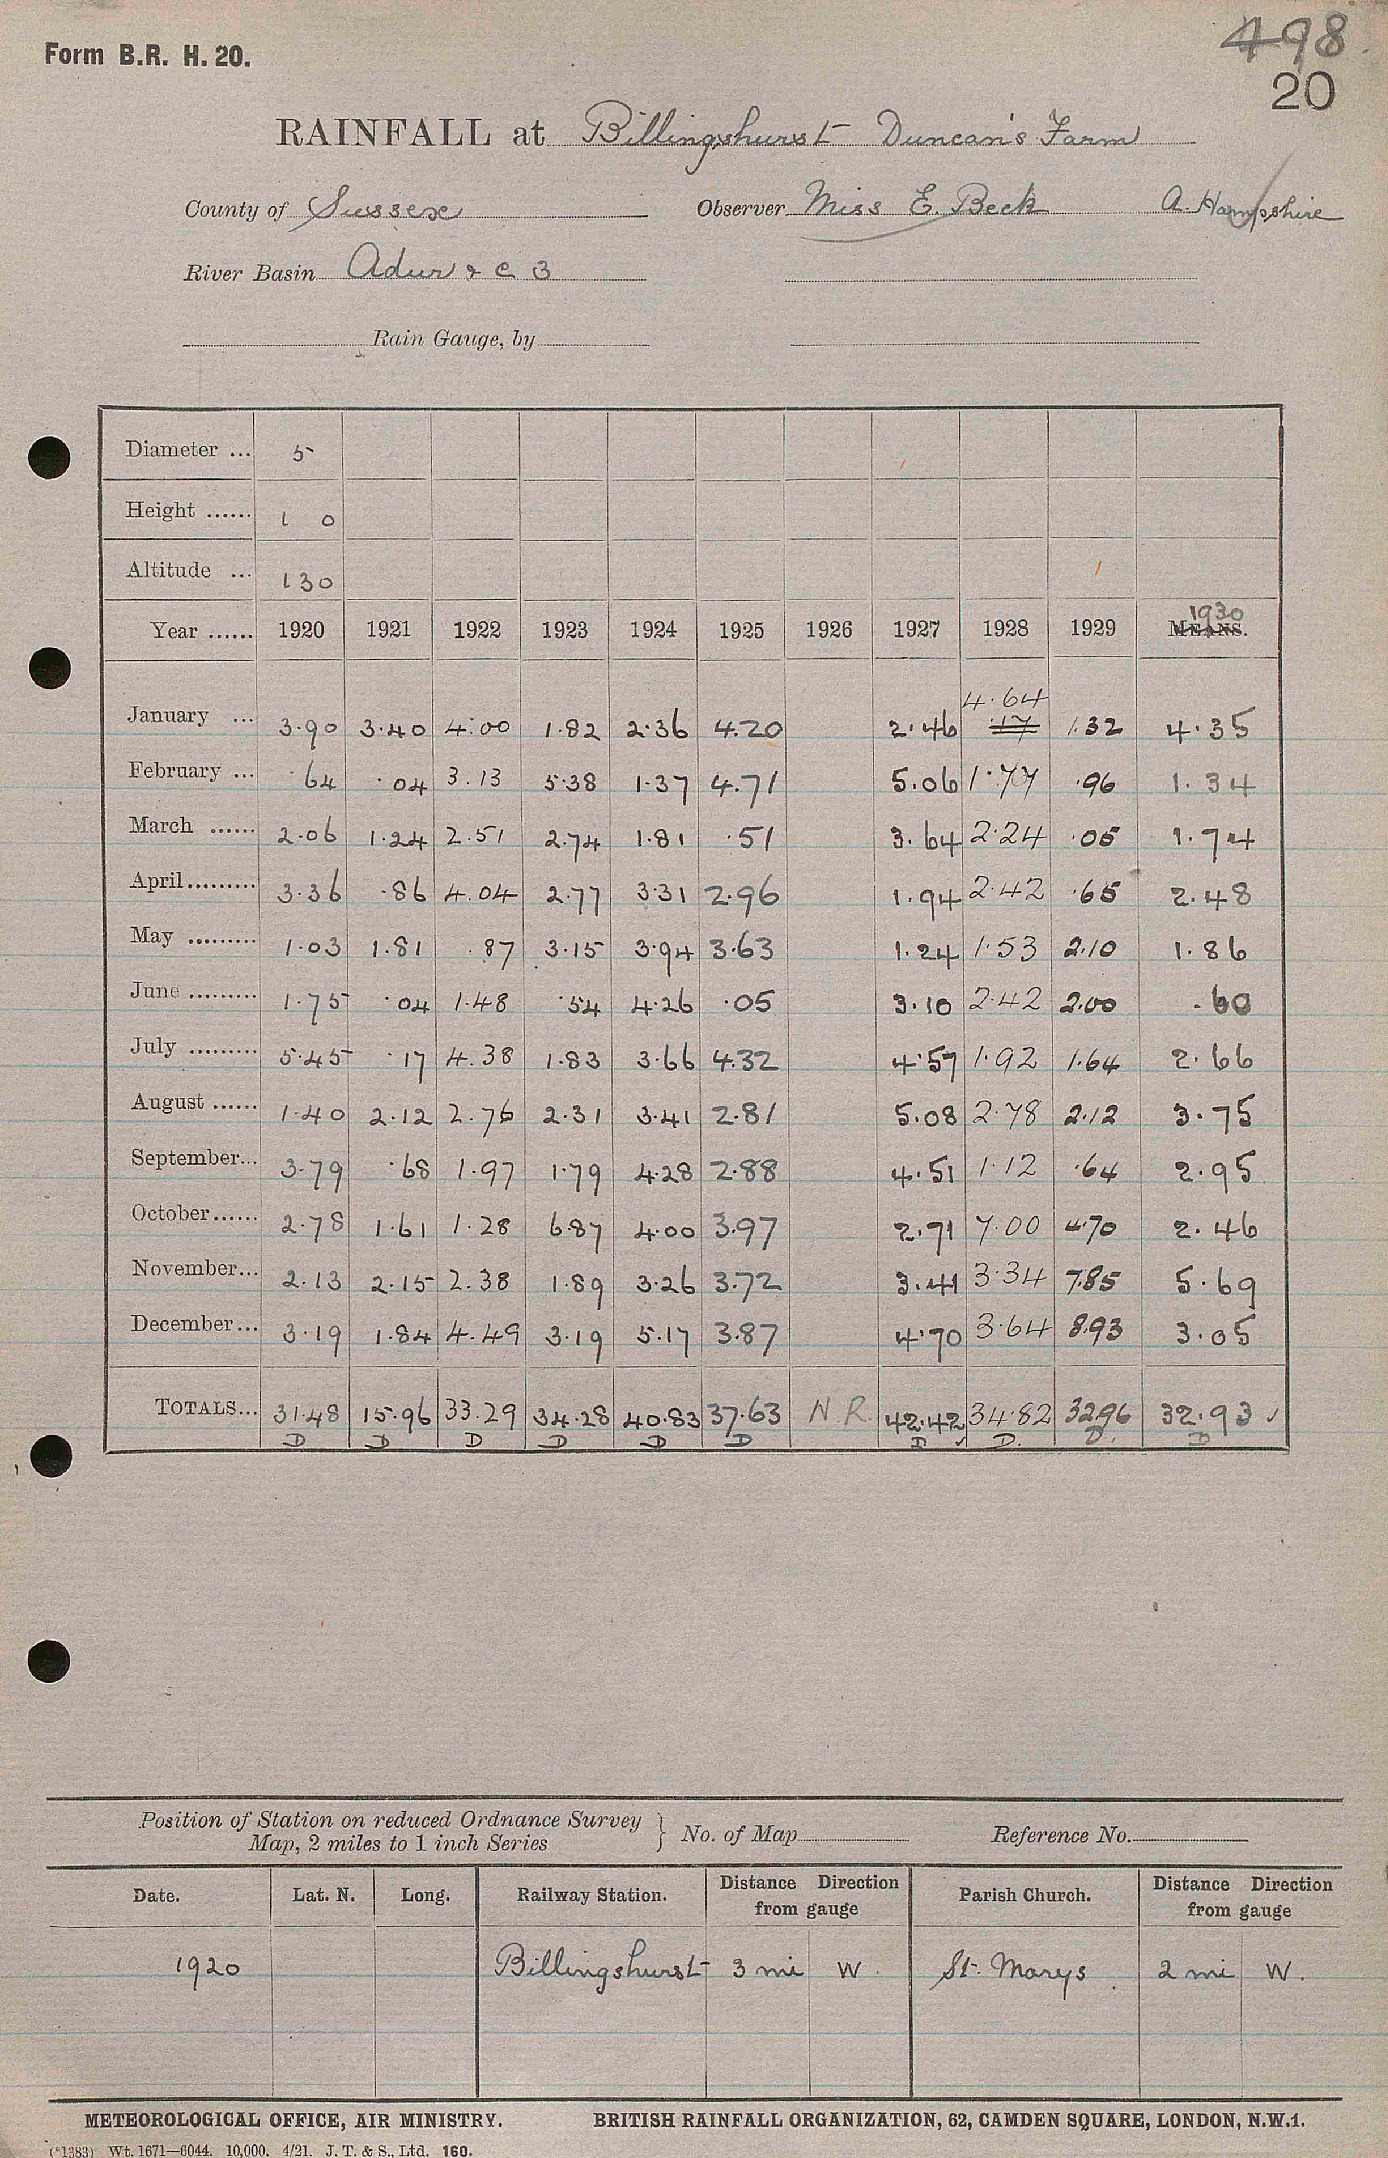 Form B.R. H. 20.
498
20
RAINFALL at Billingshurst Duncan's Farm
County of Sussex Observer Miss E. Beck A. Hampshire
River Basin Adur & C 3
Rain Gauge, by
Diameter ... 5
Height ...... 1 0
Altitude ... 130
1930
Year ...... 1920 1921 1922 1923 1924 1925 1926 1927 1928 1929 MEANS.
4.64
January ... 3.90 3.40 4.00 1.82 2.36 4.20 2.46 .17 1.32 4.35
February ... .64 .04 3.13 5.38 1.37 4.71 5.06 1.77 .96 1.34
March ...... 2.06 1.24 2.51 2.74 1.81 .51 3.64 2.24 .05 1.74
April......... 3.36 .86 4.04 2.77 3.31 2.96 1.94 2.42 .65 2.48
May ......... 1.03 1.81 .87 3.15 3.94 3.63 1.24 1.53 2.10 1.86
June ......... 1.75 .04 1.48 .54 4.26 .05 3.10 2.42 2.00 .60
July ......... 5.45 .17 4.38 1.83 3.66 4.32 4.57 1.92 1.64 2.66
August ...... 1.40 2.12 2.76 2.31 3.41 2.81 5.08 2.78 2.12 3.75
September... 3.79 .68 1.97 1.79 4.28 2.88 4.51 1.12 .64 2.95
October...... 2.78 1.61 1.28 6.87 4.00 3.97 2.71 7.00 4.70 2.46
November... 2.13 2.15 2.38 1.89 3.26 3.72 3.41 3.34 7.85 5.69
December... 3.19 1.84 4.49 3.19 5.17 3.87 4.70 3.64 8.93 3.05
TOTALS... 31.48 15.96 33.29 34.28 40.83 37.63 N.R. 42.42 34.82 32.96 32.93 ✓
D D D D D D D ✓ D. D. D
Position of Station on reduced Ordnance Survey
Map, 2 miles to 1 inch Series } No. of Map Reference No.
Date. Lat. N. Long. Railway Station. Distance Direction from gauge Parish Church. Distance Direction from gauge
1920 Billingshurst 3 mi W. St. Marys 2 mi W.
METEOROLOGICAL OFFICE, AIR MINISTRY. BRITISH RAINFALL ORGANIZATION, 62, CAMDEN SQUARE, LONDON, N.W.1.
(*1383) Wt. 1671—6044. 10,000. 4/21. J. T. & S., Ltd. 160.